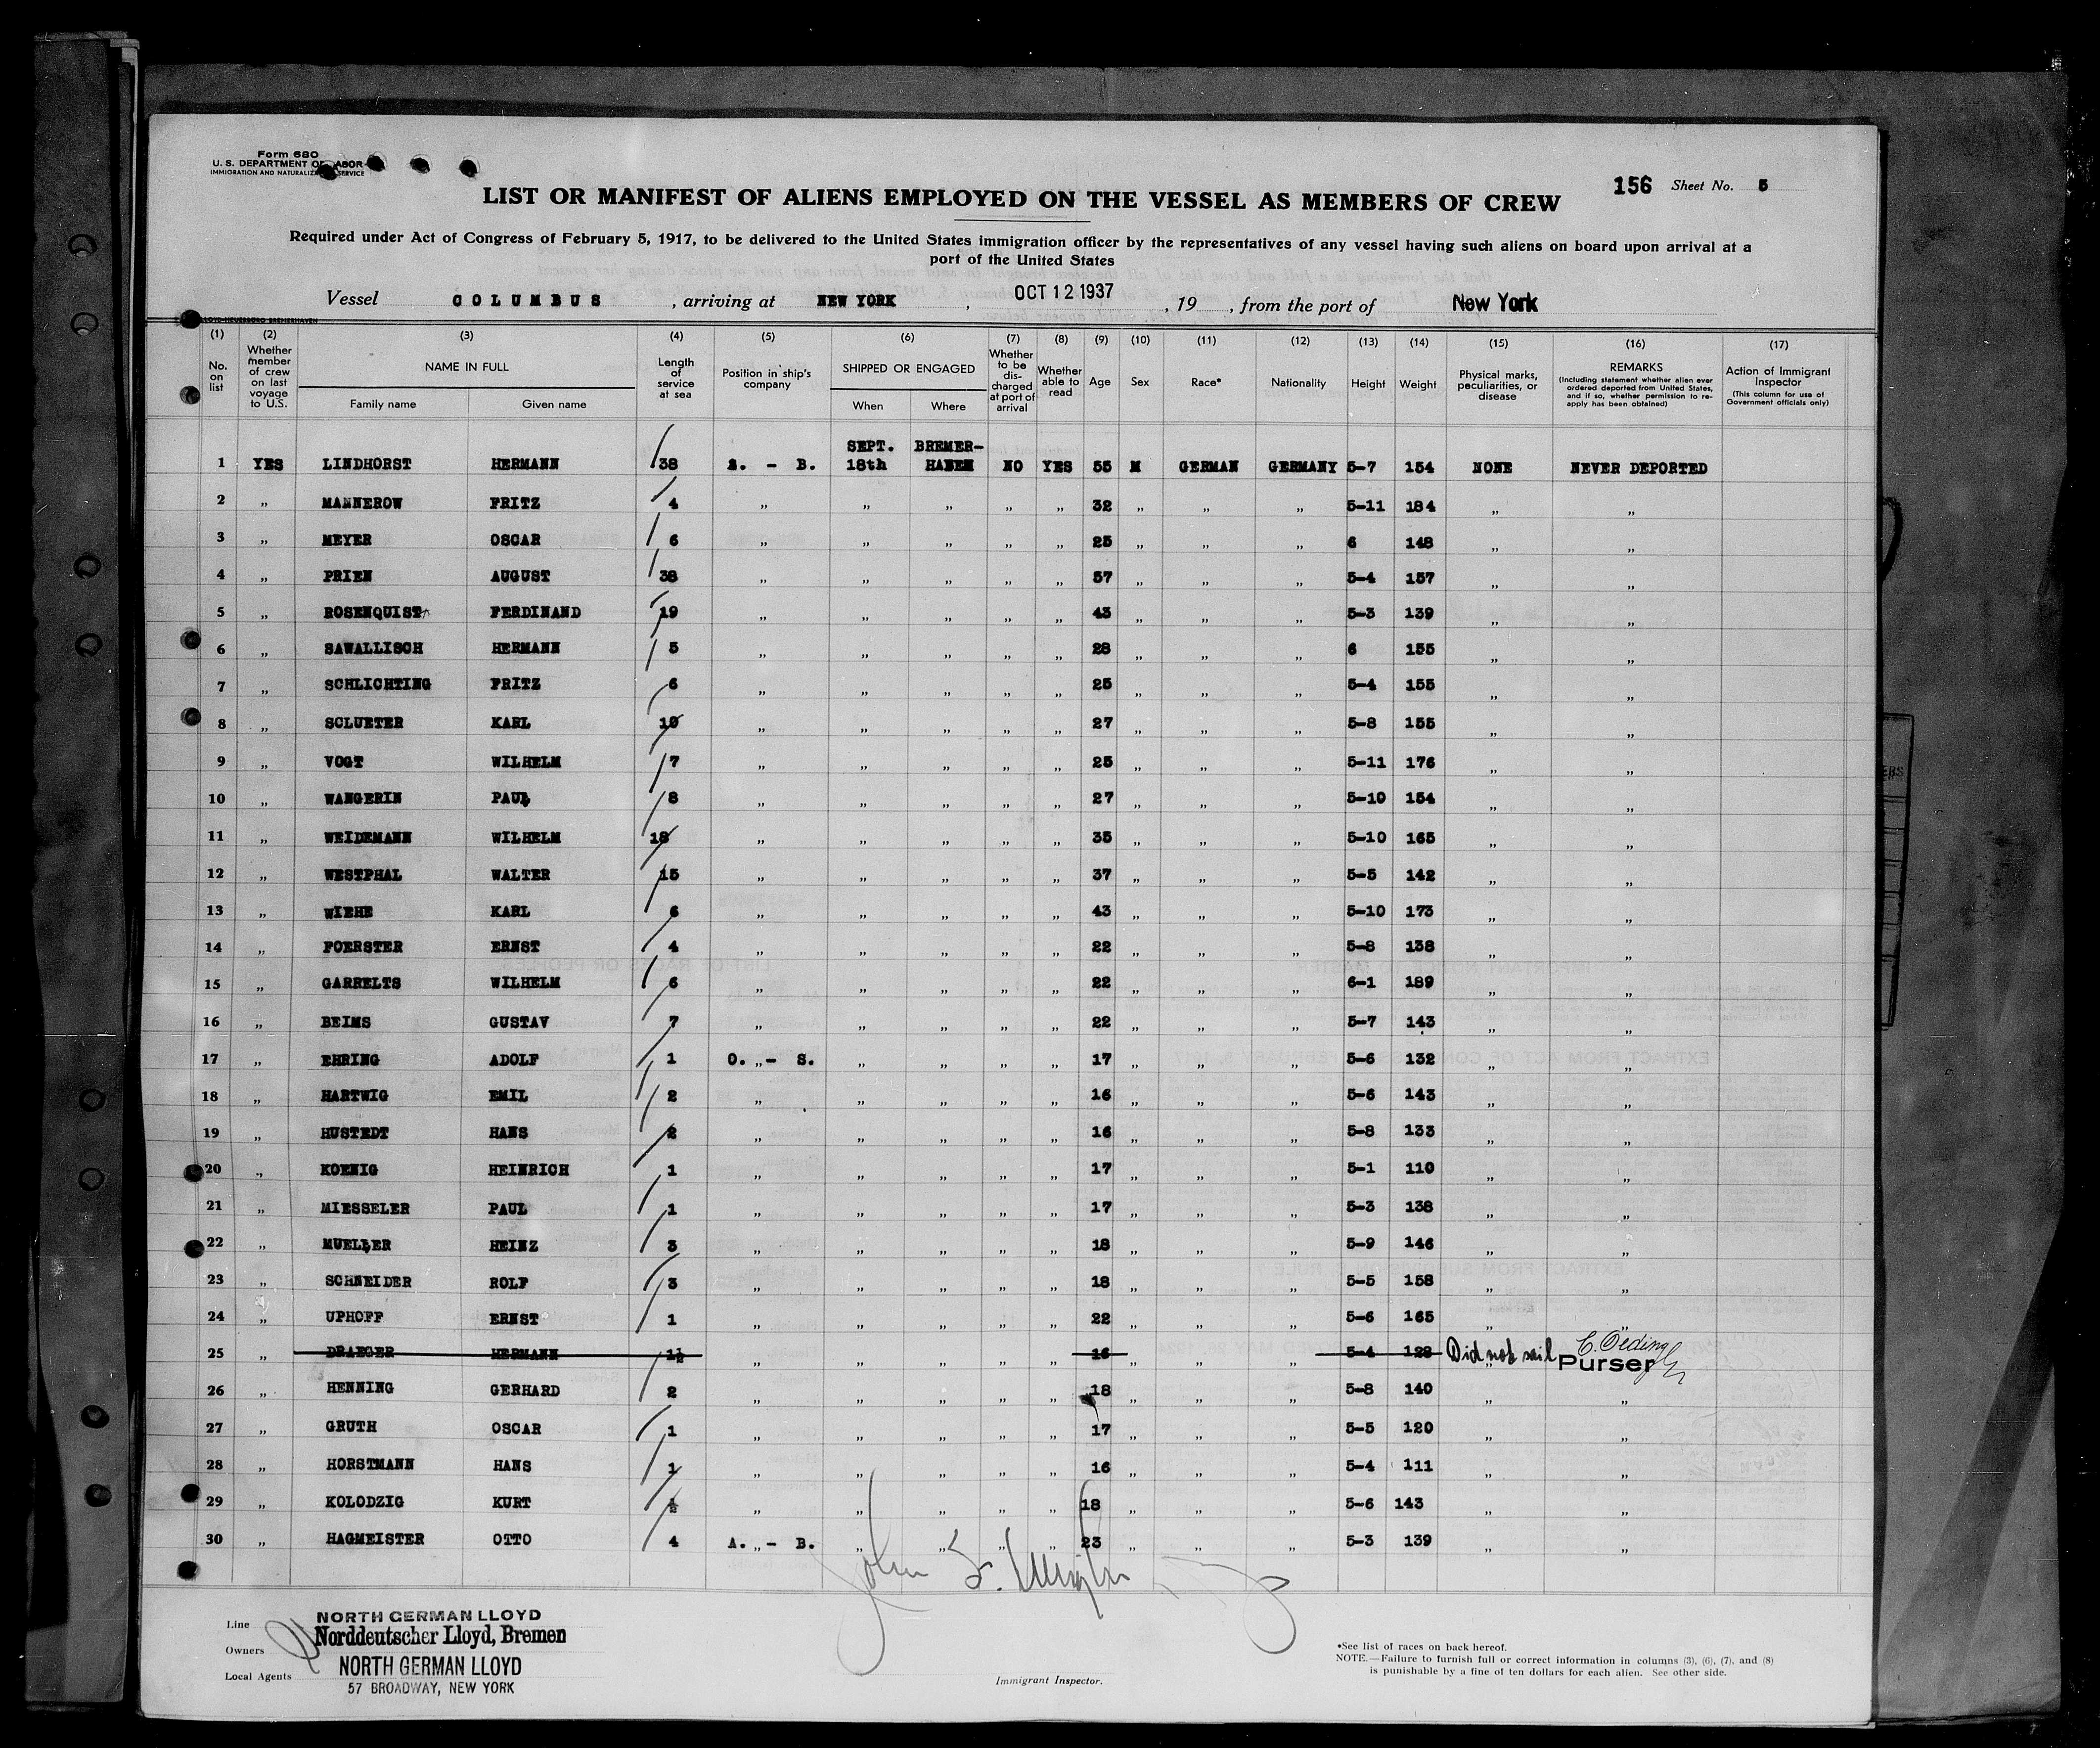 Form 680
U. S. DEPARTMENT OF LABOR
IMMIGRATION AND NATURALIZATION SERVICE
156 Sheet No. 5
LIST OR MANIFEST OF ALIENS EMPLOYED ON THE VESSEL AS MEMBERS OF CREW
Required under Act of Congress of February 5, 1917, to be delivered to the United States immigration officer by the representatives of any vessel having such aliens on board upon arrival at a
port of the United States
Vessel COLUMBUS, arriving at NEW YORK, OCT 12 1937, 19, from the port of New York
(1) (2) (3) (4) (5) (6) (7) (8) (9) (10) (11) (12) (13) (14) (15) (16) (17)
No. on list
Whether member of crew on last voyage to U.S.
NAME IN FULL
Family name Given name
Length of service at sea
Position in ship's company
SHIPPED OR ENGAGED
When Where
Whether to be discharged at port of arrival
Whether able to read
Age
Sex
Race*
Nationality
Height
Weight
Physical marks, peculiarities, or disease
REMARKS
(Including statement whether alien ever ordered deported from United States, and if so, whether permission to re-apply has been obtained)
Action of Immigrant Inspector
(This column for use of Government officials only)
1 YES LINDHORST HERMANN 38 A. - B. SEPT. 18th BREMER-HAVEN NO YES 55 M GERMAN GERMANY 5-7 154 NONE NEVER DEPORTED
2 " MANNEROW FRITZ 4 " " " " " 32 " " " 5-11 184 " "
3 " MEYER OSCAR 6 " " " " " 25 " " " 6 148 " "
4 " PRIEN AUGUST 38 " " " " " 57 " " " 5-4 157 " "
5 " ROSENQUIST FERDINAND 19 " " " " " 43 " " " 5-3 139 " "
6 " SAWALLISCH HERMANN 5 " " " " " 28 " " " 6 155 " "
7 " SCHLICHTING FRITZ 6 " " " " " 25 " " " 5-4 155 " "
8 " SCLUETER KARL 10 " " " " " 27 " " " 5-8 155 " "
9 " VOGT WILHELM 7 " " " " " 25 " " " 5-11 176 " "
10 " WANGERIN PAUL 8 " " " " " 27 " " " 5-10 154 " "
11 " WEIDEMANN WILHELM 18 " " " " " 35 " " " 5-10 165 " "
12 " WESTPHAL WALTER 15 " " " " " 37 " " " 5-5 142 " "
13 " WIEHE KARL 6 " " " " " 43 " " " 5-10 173 " "
14 " FOERSTER ERNST 4 " " " " " 22 " " " 5-8 138 " "
15 " GARRELTS WILHELM 6 " " " " " 22 " " " 6-1 189 " "
16 " BEIMS GUSTAV 7 " " " " " 22 " " " 5-7 143 " "
17 " EHRING ADOLF 1 O. " - S. " " " " 17 " " " 5-6 132 " "
18 " HARTWIG EMIL 2 " " " " " 16 " " " 5-6 143 " "
19 " HUSTEDT HANS 2 " " " " " 16 " " " 5-8 133 " "
20 " KOENIG HEINRICH 1 " " " " " 17 " " " 5-1 110 " "
21 " MIESSELER PAUL 1 " " " " " 17 " " " 5-3 138 " "
22 " MUELLER HEINZ 3 " " " " " 18 " " " 5-9 146 " "
23 " SCHNEIDER ROLF 3 " " " " " 18 " " " 5-5 158 " "
24 " UPHOFF ERNST 1 " " " " " 22 " " " 5-6 165 " "
25 " DRAEGER HERMANN 1½ " " " " " 16 " " " 5-4 128 Did not sail C. Oeding Purser
26 " HENNING GERHARD 2 " " " " " 18 " " " 5-8 140 " "
27 " GRUTH OSCAR 1 " " " " " 17 " " " 5-5 120 " "
28 " HORSTMANN HANS 1 " " " " " 16 " " " 5-4 111 " "
29 " KOLODZIG KURT ½ " " " " " 18 " " " 5-6 143 " "
30 " HAGMEISTER OTTO 4 A. " - B. " " " " 23 " " " 5-3 139 " "
John
Line NORTH GERMAN LLOYD
Owners Norddeutscher Lloyd, Bremen
Local Agents NORTH GERMAN LLOYD
57 BROADWAY, NEW YORK
Immigrant Inspector.
*See list of races on back hereof.
NOTE.—Failure to furnish full or correct information in columns (3), (6), (7), and (8)
is punishable by a fine of ten dollars for each alien. See other side.